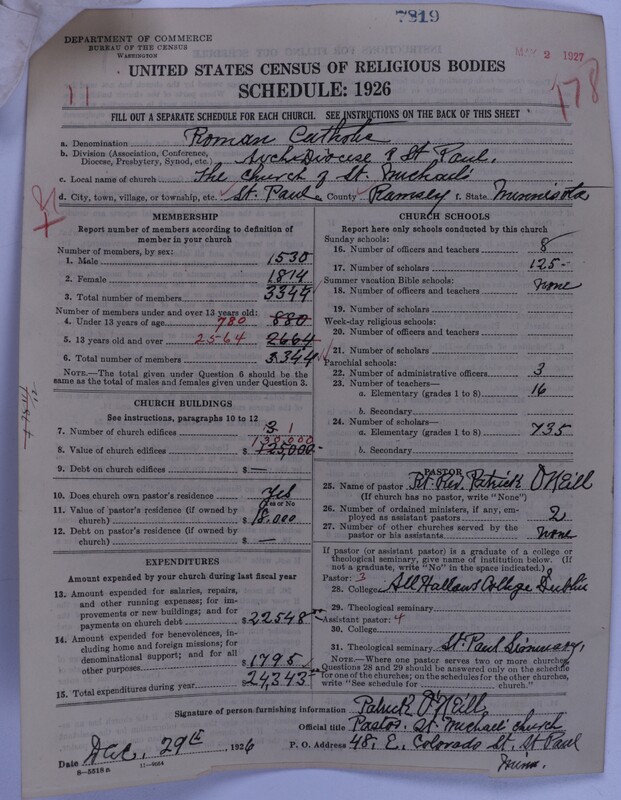 7819
DEPARTMENT OF COMMERCE
BUREAU OF THE CENSUS
WASHINGTON
MAY 2 1927
11
178
UNITED STATES CENSUS OF RELIGIOUS BODIES
SCHEDULE: 1926
FILL OUT A SEPARATE SCHEDULE FOR EACH CHURCH. SEE INSTRUCTIONS ON THE BACK OF THIS SHEET
a. Denomination Roman Catholic
b. Division (Association, Conference, Diocese, Presbytery, Synod, etc.) Archdiocese of St Paul.
c. Local name of church The Church of St. Michael's
d. City, town, village, or township, etc. St. Paul e. County Ramsey f. State Minnisota
MEMBERSHIP
Report number of members according to definition of member in your church
Number of members, by sex:
1. Male 1530
2. Female 1814
3. Total number of members 3344
Number of members under and over 13 years old:
4. Under 13 years of age 780 880
5. 13 years old and over 2564 2664
6. Total number of members 3344
NOTE.—The total given under Question 6 should be the same as the total of males and females given under Question 3.
CHURCH BUILDINGS
See instructions, paragraphs 10 to 12
7. Number of church edifices 3 1
130,000
8. Value of church edifices $ 125,000
9. Debt on church edifices $ —
10. Does church own pastor's residence Yes
Yes or No
11. Value of pastor's residence (if owned by church) $ 18,000
12. Debt on pastor's residence (if owned by church) $ —
EXPENDITURES
Amount expended by your church during last fiscal year
13. Amount expended for salaries, repairs, and other running expenses; for improvements or new buildings; and for payments on church debt $ 22548
14. Amount expended for benevolences, including home and foreign missions; for denominational support; and for all other purposes $ 1795
15. Total expenditures during year $ 24,343
CHURCH SCHOOLS
Report here only schools conducted by this church
Sunday schools:
16. Number of officers and teachers 8
17. Number of scholars 125-
Summer vacation Bible schools:
18. Number of officers and teachers None
19. Number of scholars
Week-day religious schools:
20. Number of officers and teachers
21. Number of scholars
Parochial schools:
22. Number of administrative officers 3
23. Number of teachers—
a. Elementary (grades 1 to 8) 16
b. Secondary
24. Number of scholars—
a. Elementary (grades 1 to 8) 735
b. Secondary
PASTOR
25. Name of pastor Rt. Rev. Patrick O'Neill
(If church has no pastor, write "None")
26. Number of ordained ministers, if any, employed as assistant pastors 2
27. Number of other churches served by the pastor or his assistants None
If pastor (or assistant pastor) is a graduate of a college or theological seminary, give name of institution below. (If not a graduate, write "No" in the space indicated.)
Pastor: 3
28. College All Hallows College Dublin
29. Theological seminary
Assistant pastor: 4
30. College
31. Theological seminary St. Paul Siminary,
NOTE.—Where one pastor serves two or more churches, Questions 28 and 29 should be answered only on the schedule for one of the churches; on the schedules for the other churches, write "See schedule for church."
Signature of person furnishing information Patrick O'Neill,
Official title Pastor, St Michael' church
Date Dec. 29th 1926 P. O. Address 48, E. Colorado St. St Paul
Minn.
8-5518a 11-9054